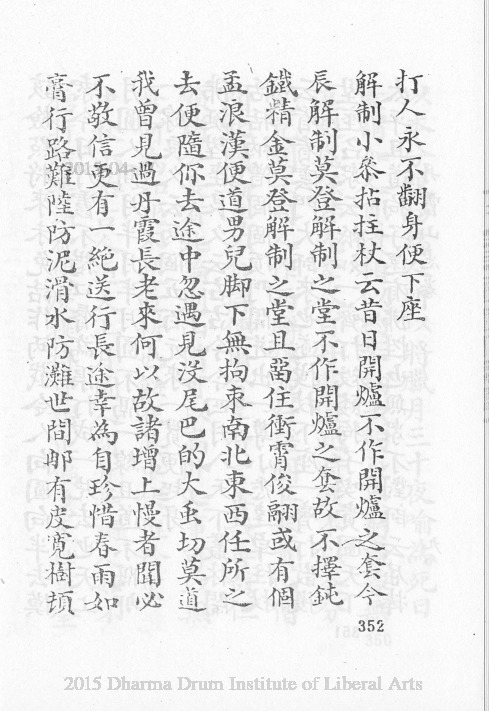 打人永不翻身便下座
解制小叅拈拄杖云昔日開爐不作開爐之套今
辰解制莫登解制之堂不作開爐之套故不擇鈍
鐵精金莫登解制之堂且畱住衝霄俊翮或有個
孟浪漢便道男兒脚下無拘束南北東西任所之
去便隨你去途中忽遇見没尾巴的大虫切莫道
我曾見過丹霞長老來何以故諸增上慢者聞必
不敬信更有一絶送行長途幸為自珍惜春雨如
膏行路難陸防泥滑水防灘世間那有皮寛樹頂
352
2015 Dharma Drum Institute of Liberal Arts